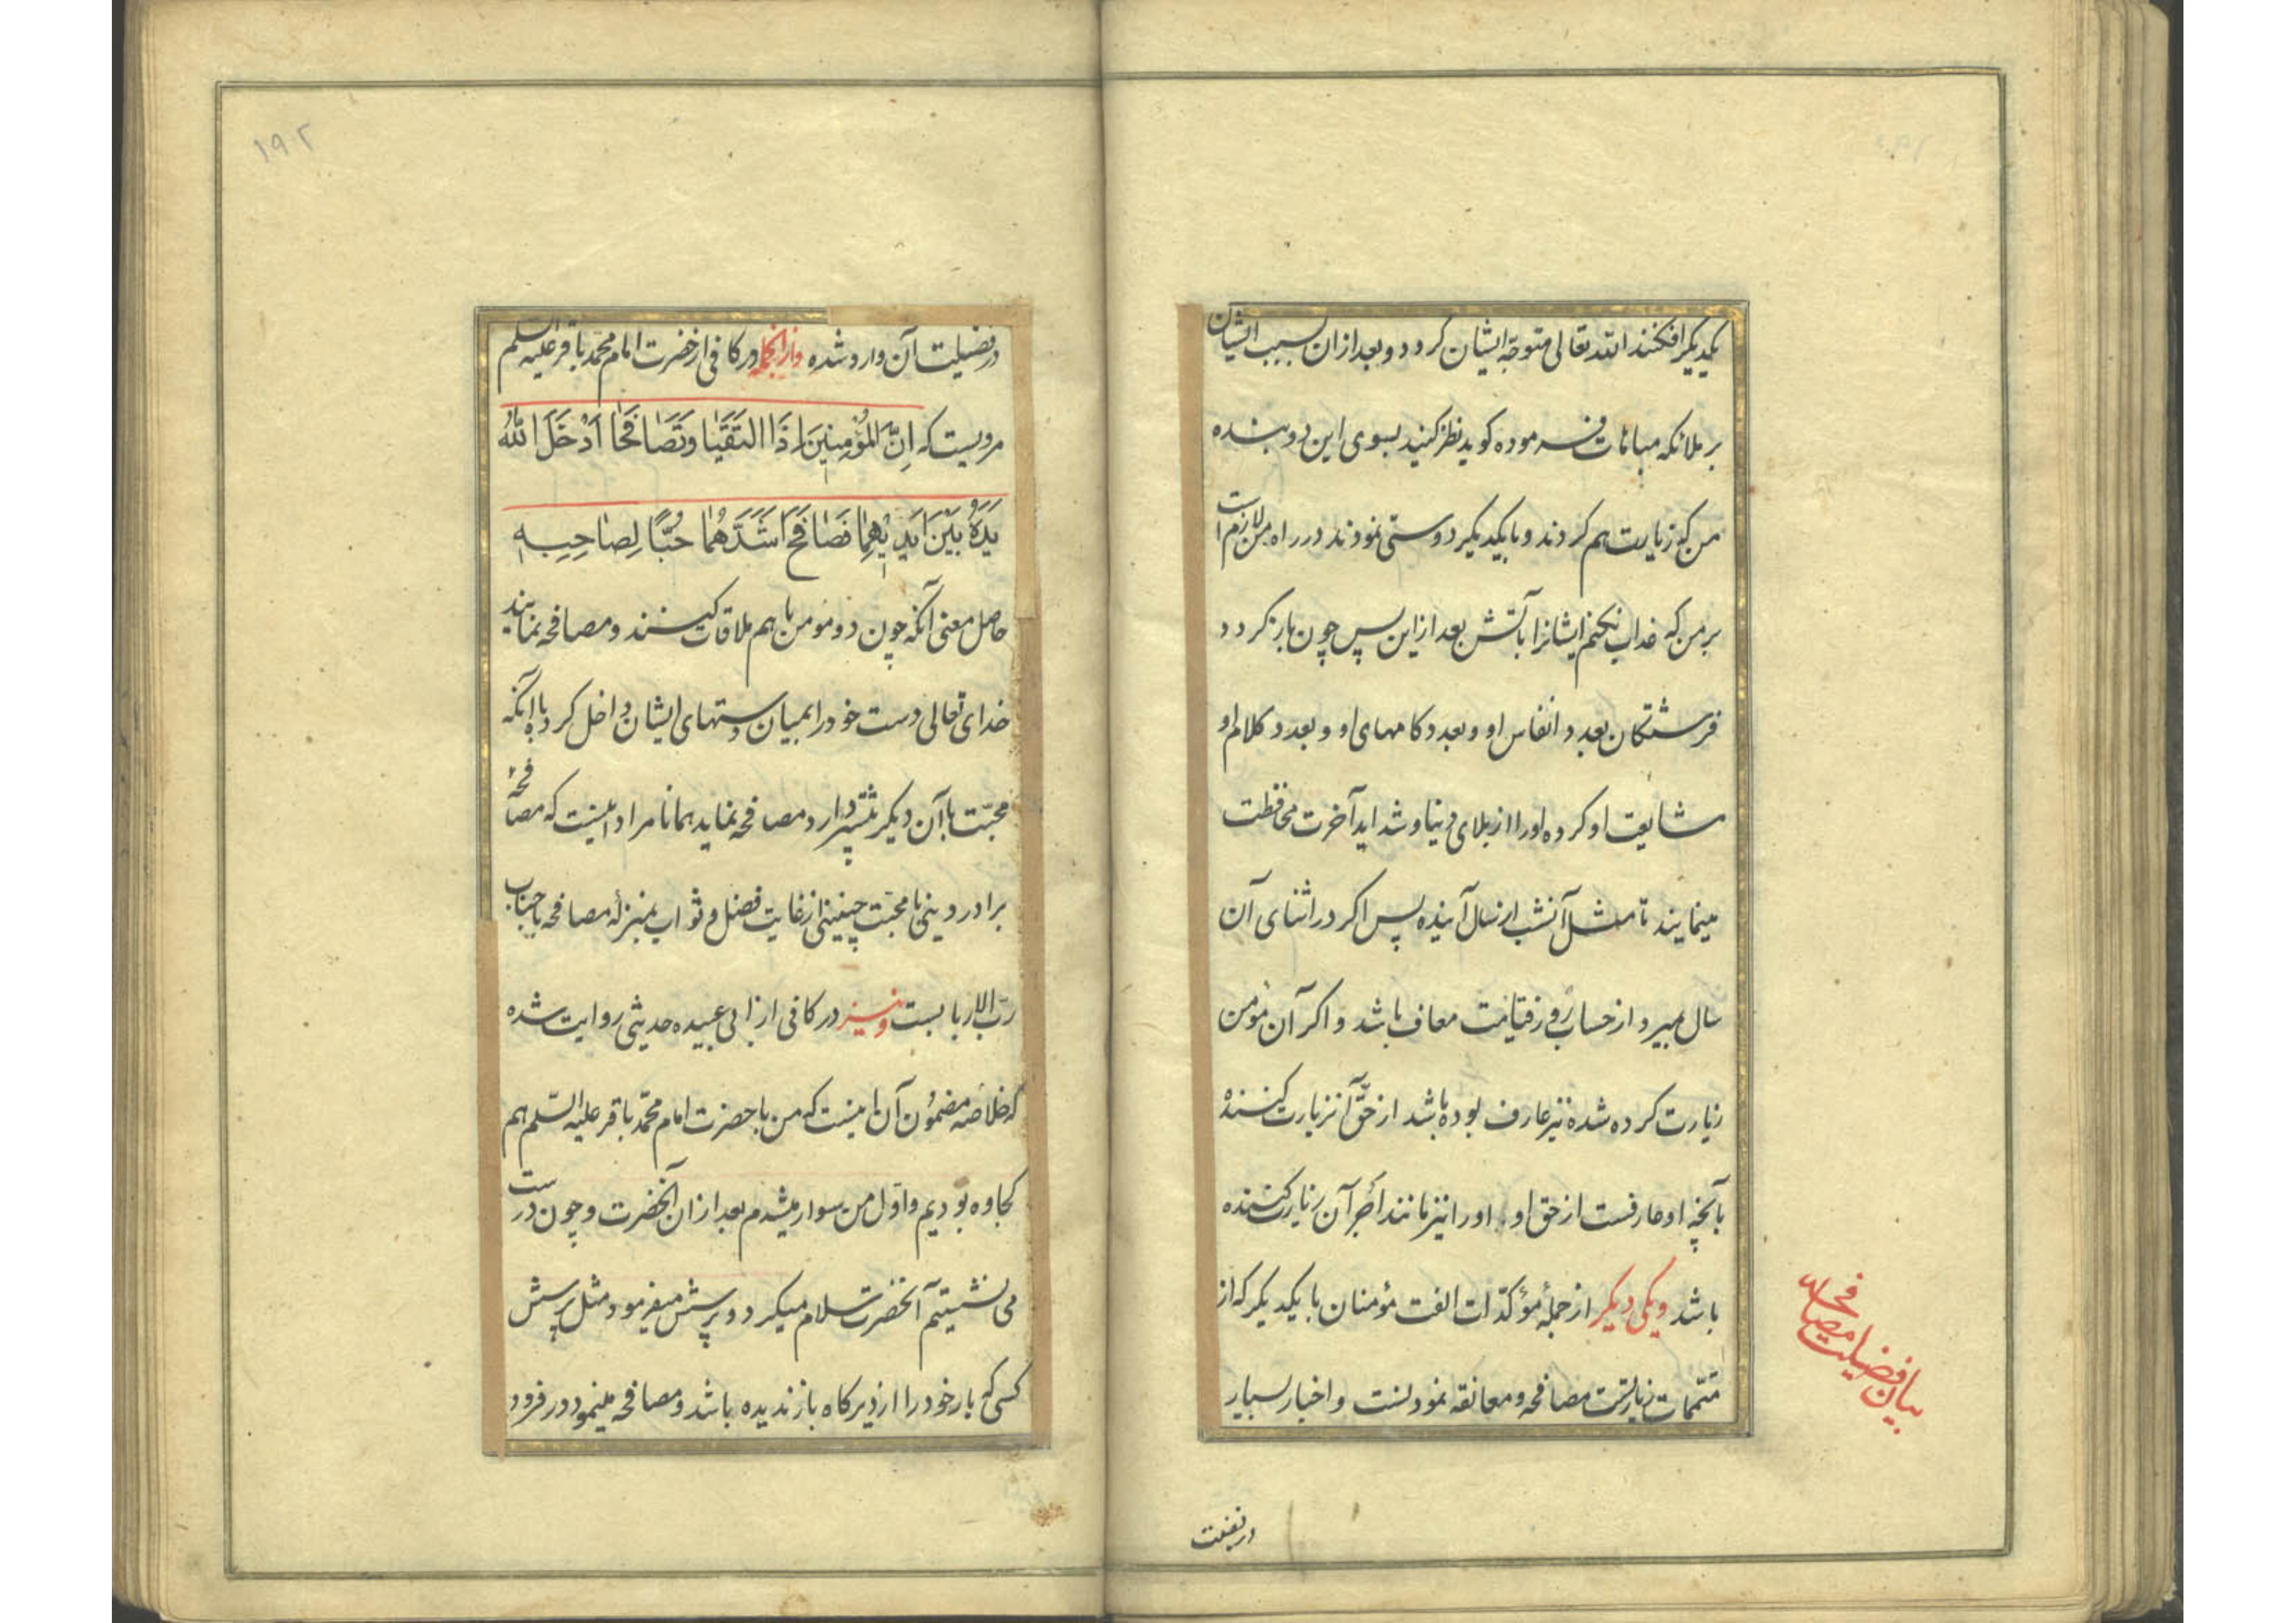 یکدیگر افکنند الله تعالی متوجّه ایشان کردد و بعد از ان بسبب ایشان
بر ملائکه مباهات فرموده کوید نظر کنید بسوی این دو بنده
من که زیارت هم کردند و با یکدیکر دوستی نمودند در راه من لازم است
بر من که عذاب نکنم ایشانرا بآتش بعد از این پس چون باز کردد
فرشتکان بعدد انفاس او و بعدد کامهای او و بعدد کلام او
مشایعت او کرده او را از بلای دنیا و شداید آخرت محافظت
مینمایند تا مثل آنشب از سال آینده پس اکر در اثنای آن
سال بمیرد از حساب روز قیامت معاف باشد و اکر آن مؤمن
زیارت کرده شده نیز عارف بوده باشد از حقّ آن زیارت کننده
بآنچه او عارفست از حق او، او را نیز مانند اجر آن زیارت کننده
باشد و یکی دیکر از جملهٔ مؤکّدات الفت مؤمنان با یکدیکر که از
متمّمات زیارتست مصافحه و معانقه نمودنست و اخبار بسیار
بیان فضیلت مصافحه
در فضیلت
۱۹۲
در فضیلت آن وارد شده و از انجمله در کافی از حضرت امام محمّد باقر علیه السلم
مرویست که اِنَّ الْمُؤْمِنَیْنِ اِذَا الْتَقَیَا وَتَصَافَحَا اَدْخَلَ اللّٰهُ
یَدَهُ بَیْنَ اَیْدِیْهِمَا فَصَافَحَ اَشَدَّهُمَا حُبًّا لِصَاحِبِهِ
حاصل معنی آنکه چون دو مؤمن با هم ملاقات کنند و مصافحه نمایند
خدای تعالی دست خود را بمیان دستهای ایشان داخل کرده با آنکه
محبّت بآن دیکر بیشتر دارد مصافحه نماید همانا مراد اینست که مصافحهٔ
برادر دینی با محبّت چنینی از غایت فضل و ثواب بمنزلهٔ مصافحه با جناب
ربّ الاربابست و نیز در کافی از ابی عبیده حدیثی روایت شده
که خلاصه مضمون آن اینست که من با حضرت امام محمّد باقر علیه السّلم هم
کجاوه بودیم و اوّل من سوار میشدم بعد از ان آنحضرت و چون درست
می نشستیم آنحضرت سلام میکرد و پرسش میفرمود مثل پرسش
کسی که یار خود را از دیرکاه باز ندیده باشد و مصافحه مینمود و در فرود